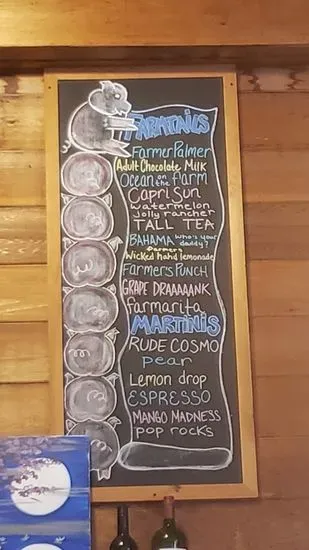 FARMTAILS
FARMER PALMER
Adult Chocolate Milk
Ocean on the Farm
Capri Sun
watermelon
Jolly rancher
TALL TEA
BAHAMA who's your daddy?
Farmers
Wicked hard lemonade
FARMERS PUNCH
GRAPE DRAAAAANK
farmarita
MARTINIS
RUDE COSMO
pear
Lemon drop
ESPRESSO
MANGO MADNESS
pop rocks